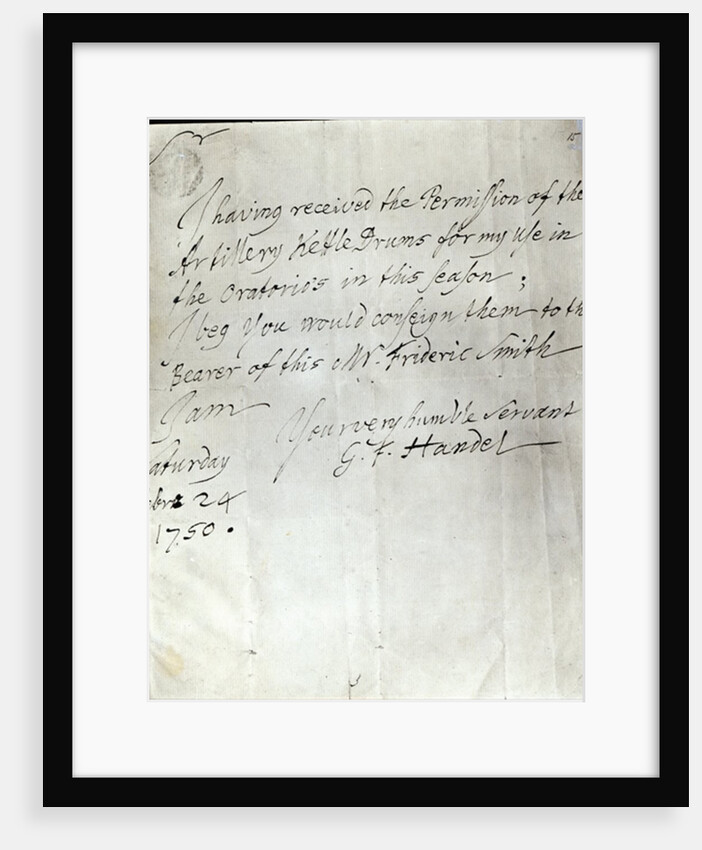 Sr
15
I having received the Permission of the
Artillery Kettle Drums for my use in
the Oratorio's in this season ;
I beg You would conseign them to th
Bearer of this Mr. Frideric Smith
I am
Your very humble Servant
G. F. Handel
aturday
bre 24
1750 .